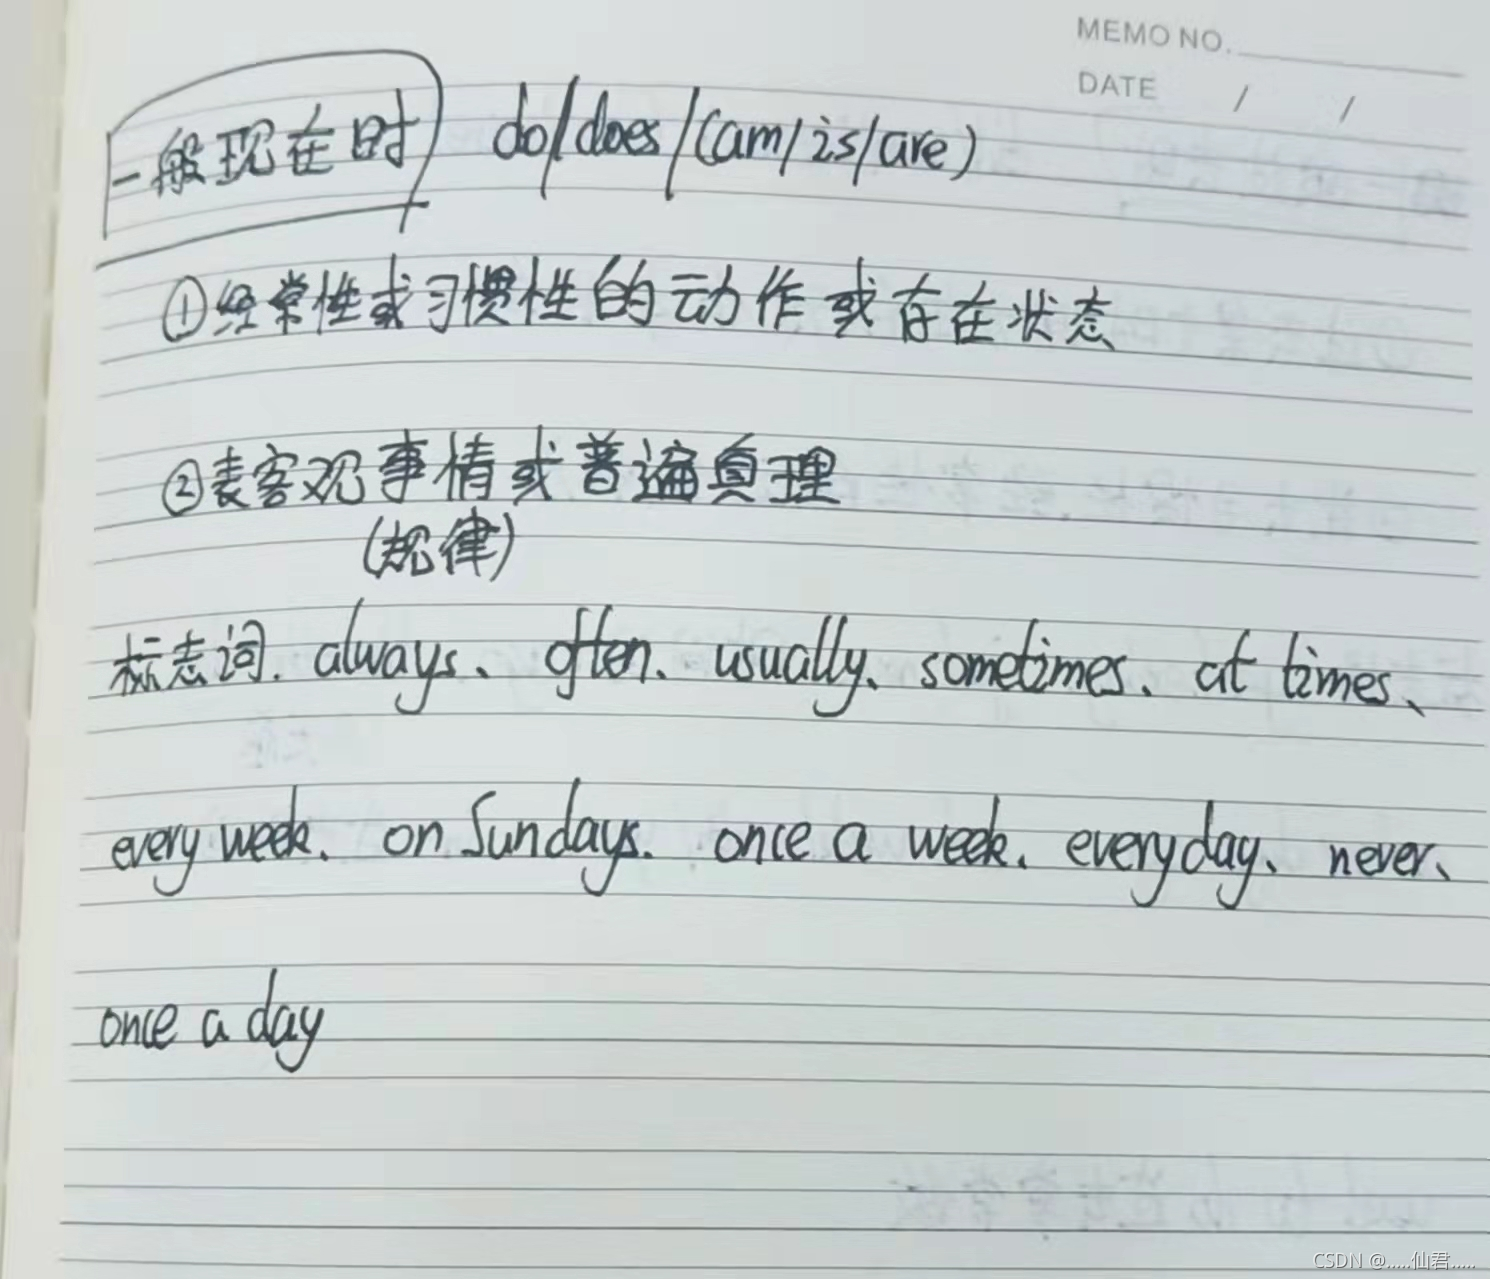 MEMO NO.
DATE / /
一般现在时 do/does/(am/is/are)
①经常性或习惯性的动作或存在状态
②表客观事情或普遍真理
(规律)
标志词. always、often、usually、sometimes、at times、
every week、on Sundays. once a week、everyday、never、
once a day
CSDN @.....仙君.....